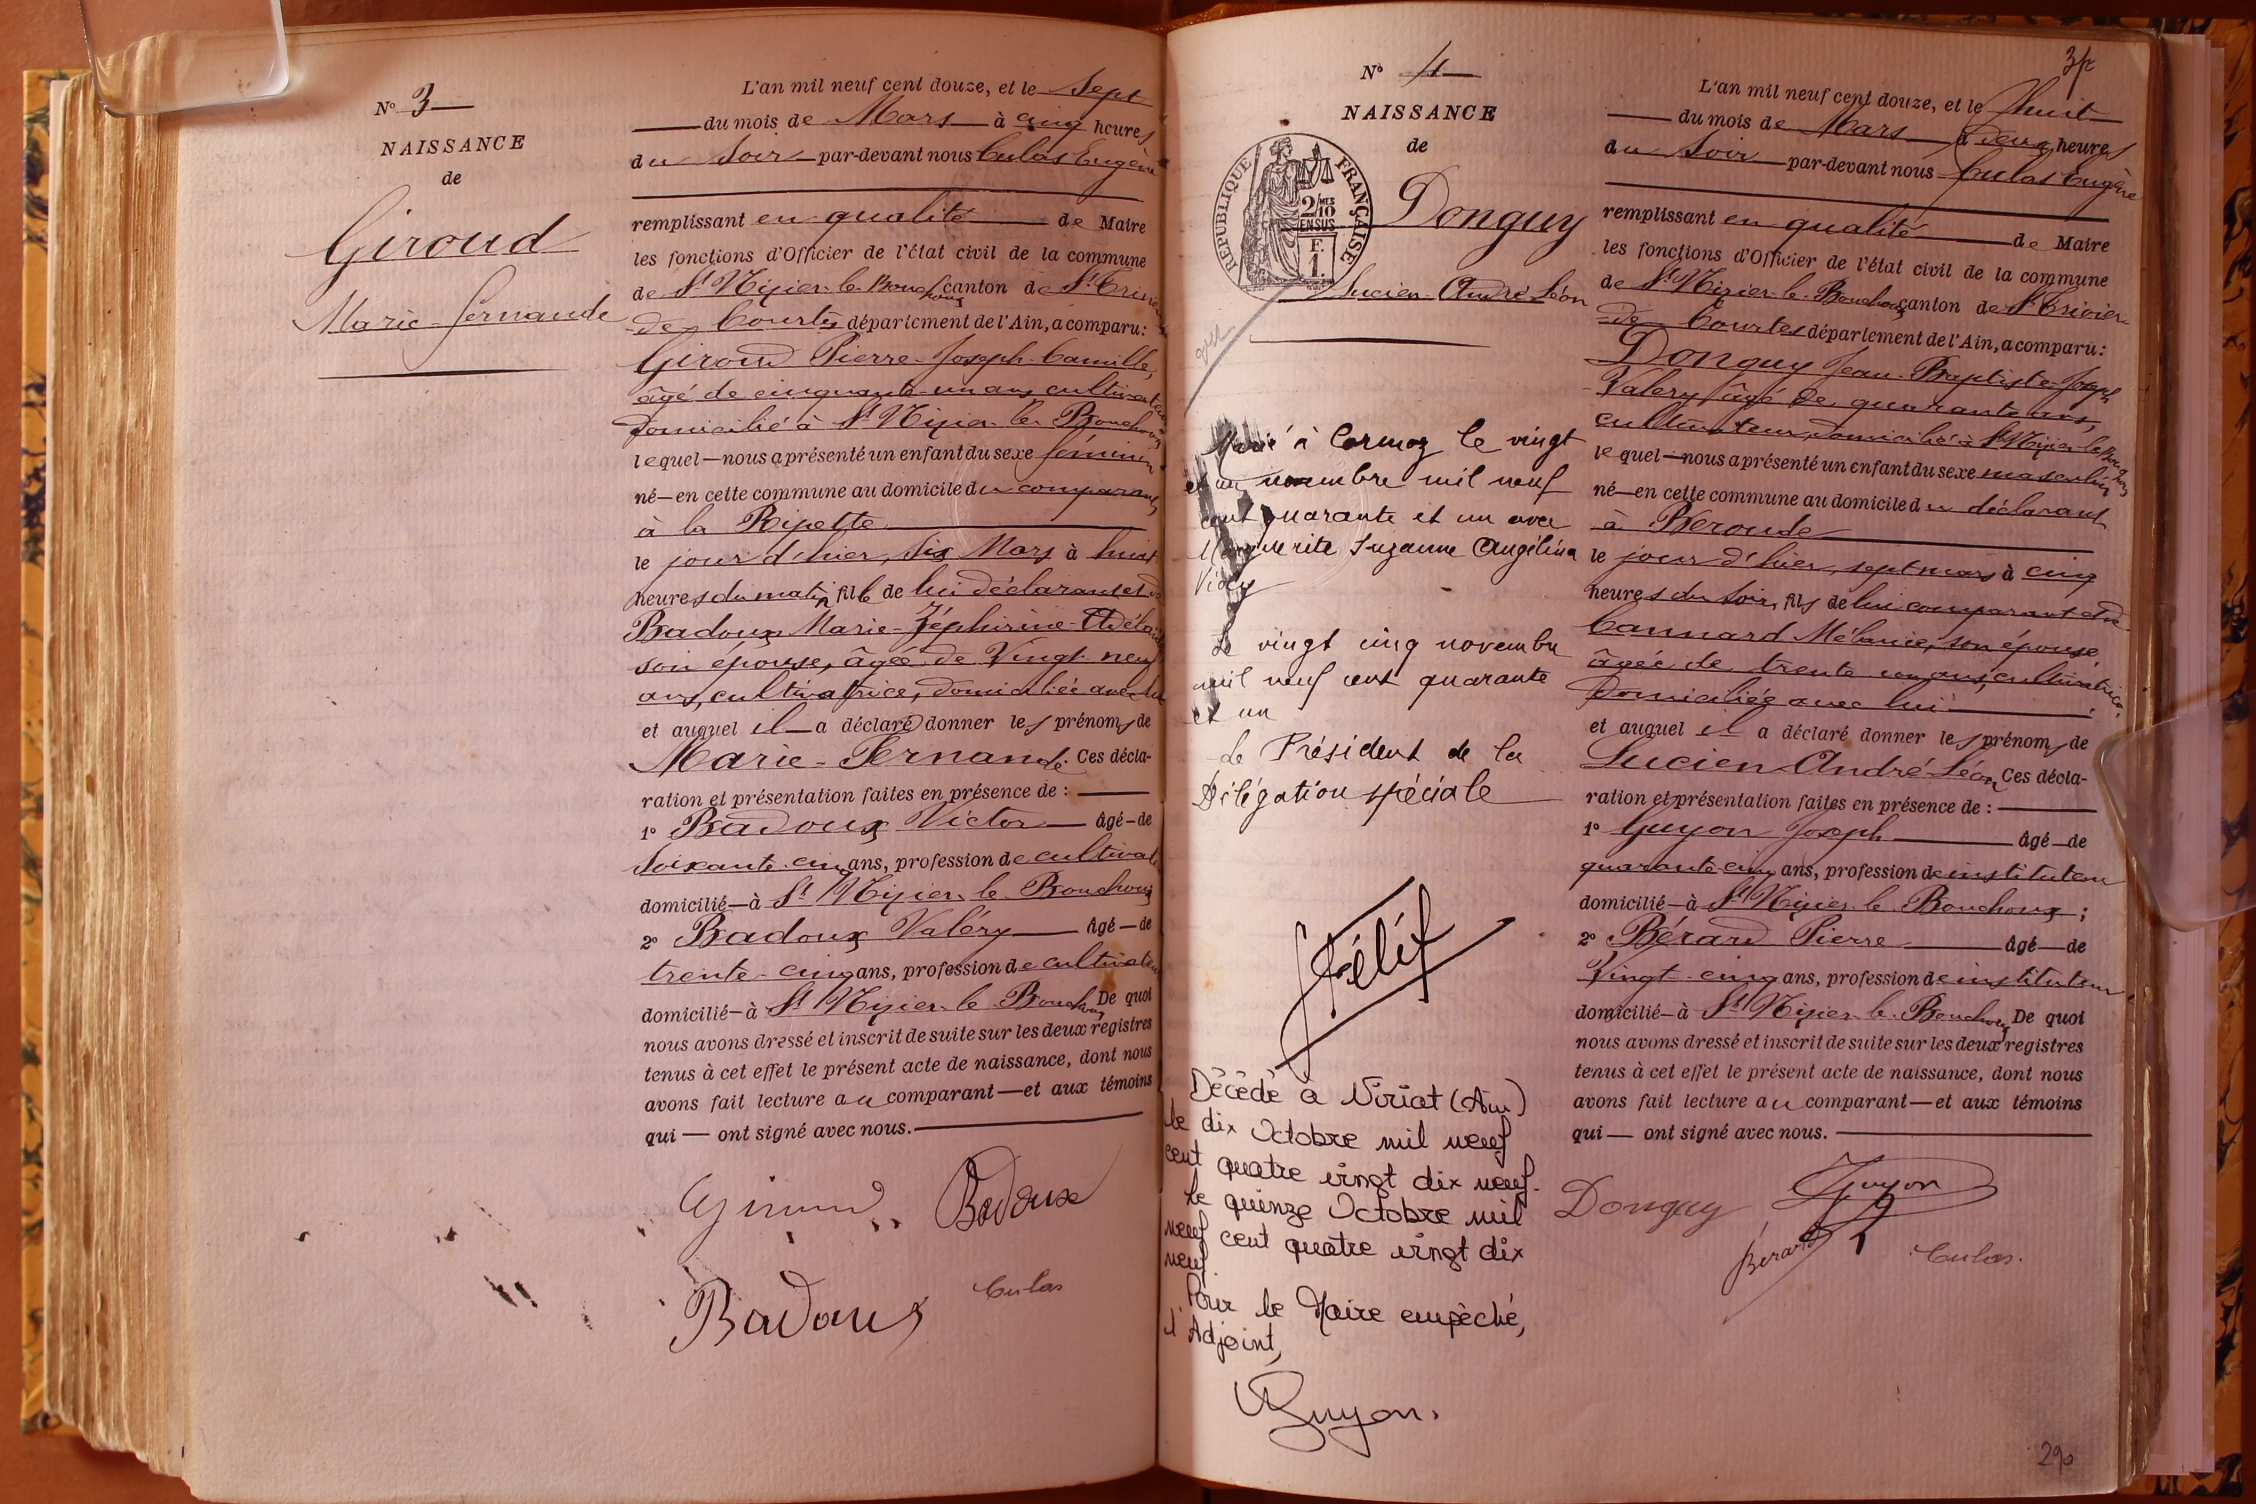 N° 3
NAISSANCE
de
Giroud
Marie-Fernande
L'an mil neuf cent douze, et le Sept
du mois de Mars à cinq heures
du Soir par-devant nous Culas Eugène
remplissant en qualité de Maire
les fonctions d'Officier de l'état civil de la commune
de St Nizier-le-Bouchoux canton de St Trivier
de Courtes département de l'Ain, a comparu:
Giroud Pierre-Joseph-Camille,
âgé de cinquante-un ans cultivateur
domicilié à St Nizier-le-Bouchoux
lequel nous a présenté un enfant du sexe féminin
né en cette commune au domicile du comparant
à la Ripette
le jour d'hier, six Mars à huit
heures du matin fille de lui déclarant et de
Badoux Marie-Zéphirine-Adélaïde
son épouse, âgée de Vingt neuf
ans, cultivatrice, domiciliée avec lui
et auquel il a déclaré donner les prénoms de
Marie-Fernande. Ces décla-
ration et présentation faites en présence de :
1° Badoux Victor âgé de
soixante-cinq ans, profession de cultivateur
domicilié à St Nizier-le-Bouchoux
2° Badoux Valéry âgé de
trente-cinq ans, profession de cultivateur
domicilié à St Nizier-le-Bouchoux De quoi
nous avons dressé et inscrit de suite sur les deux registres
tenus à cet effet le présent acte de naissance, dont nous
avons fait lecture au comparant et aux témoins
qui ont signé avec nous.
Giroud Badoux
Badoux Culas
N° 4
NAISSANCE
de
RÉPUBLIQUE FRANÇAISE
2/10 MES
EN SUS
F.
1.
Donguy
Lucien-André-Léon
vu
Marié à Cormoz le vingt
et un novembre mil neuf
cent quarante et un avec
Marguerite Suzanne Angélina
Le vingt cinq novembre
mil neuf cent quarante
et un
Le Président de la
Délégation spéciale
Décédé à Viriat (Ain)
le dix Octobre mil neuf
cent quatre vingt dix neuf.
le quinze Octobre mil
neuf cent quatre vingt dix
neuf.
Pour le Maire empêché,
l'Adjoint,
Guyon.
L'an mil neuf cent douze, et le huit
du mois de Mars à deux heures
du Soir par-devant nous Culas Eugène
remplissant en qualité de Maire
les fonctions d'Officier de l'état civil de la commune
de St Nizier-le-Bouchoux canton de St Trivier
de Courtes département de l'Ain, a comparu:
Donguy Jean-Baptiste-Joseph
Valery âgé de quarante ans,
cultivateur, domicilié à St Nizier-le-Bouchoux
lequel nous a présenté un enfant du sexe masculin
né en cette commune au domicile du déclarant
à
le jour d'hier, sept mars à cinq
heures du soir, fils de lui comparant et de
Cannard Mélanie, son épouse
âgée de trente un ans, cultivatrice,
domiciliée avec lui
et auquel il a déclaré donner les prénoms de
Lucien-André-Léon Ces décla-
ration et présentation faites en présence de :
1° Guyon Joseph âgé de
quarante-cinq ans, profession de instituteur
domicilié à St Nizier-le-Bouchoux ;
2° Bérard Pierre âgé de
Vingt-cinq ans, profession de instituteur
domicilié à St Nizier-le-Bouchoux De quoi
nous avons dressé et inscrit de suite sur les deux registres
tenus à cet effet le présent acte de naissance, dont nous
avons fait lecture au comparant et aux témoins
qui ont signé avec nous.
Donguy Guyon
Bérard Culas.